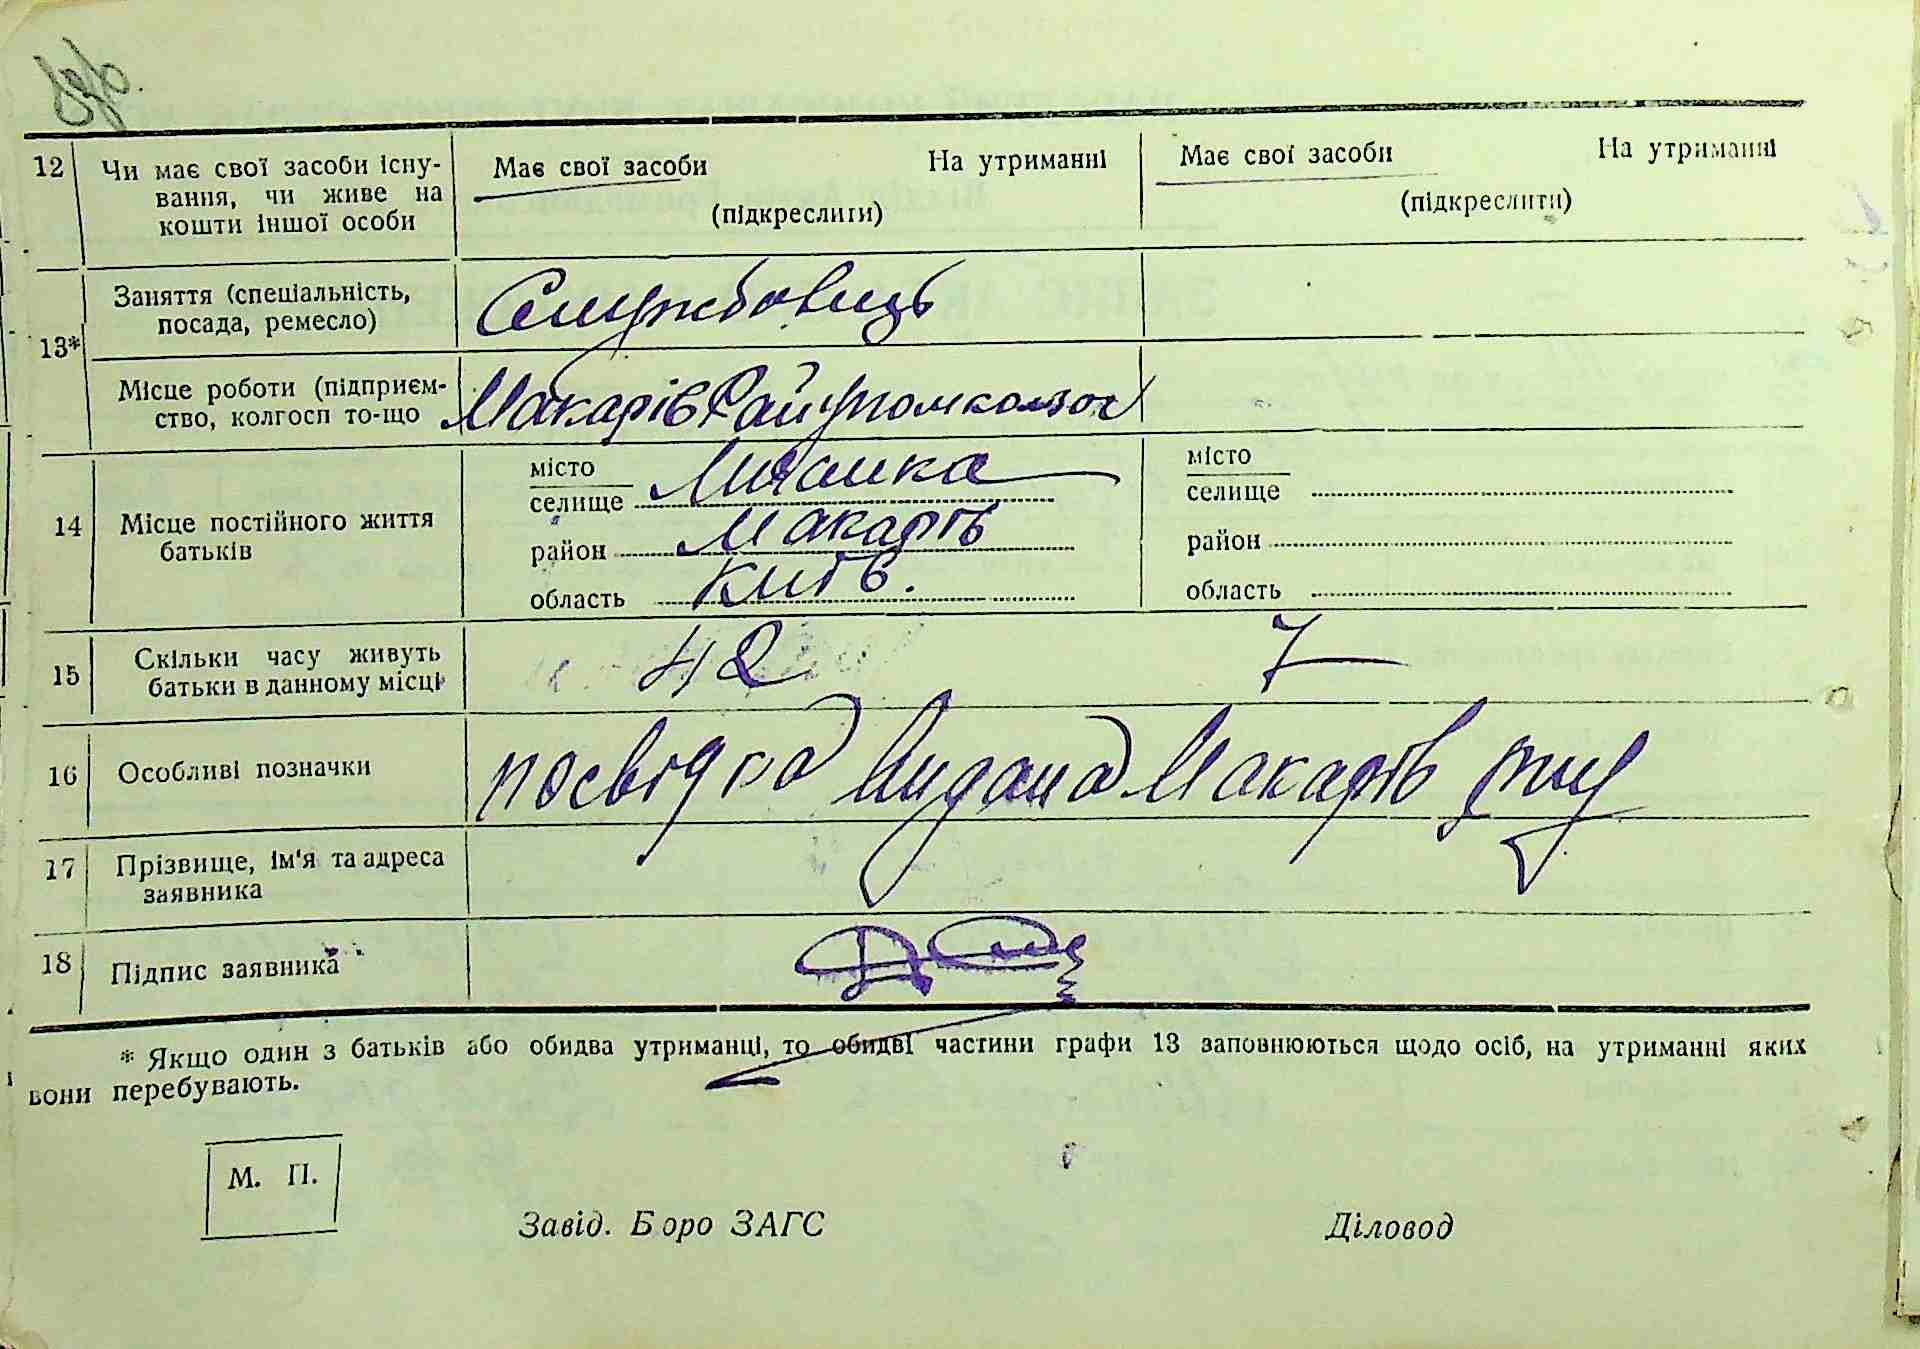 12 Чи має свої засоби існу- Має свої засоби На утриманні Має свої засоби На утриманні
вання, чи живе на (підкреслити) (підкреслити)
кошти іншої особи
13* Заняття (спеціальність, Службовець
посада, ремесло)
Місце роботи (підприєм- Макарів
ство, колгосп то-що
14 Місце постійного життя батьків
місто місто
селище селище
район Макарів район
область Київ. область
15 Скільки часу живуть 42 7
батьки в данному місці
16 Особливі позначки посвідка видана Макарів
17 Прізвище, ім'я та адреса
заявника
18 Підпис заявника
* Якщо один з батьків або обидва утриманці, то обидві частини графи 13 заповнюються щодо осіб, на утриманні яких
вони перебувають.
М. П.
Завід. Бюро ЗАГС Діловод